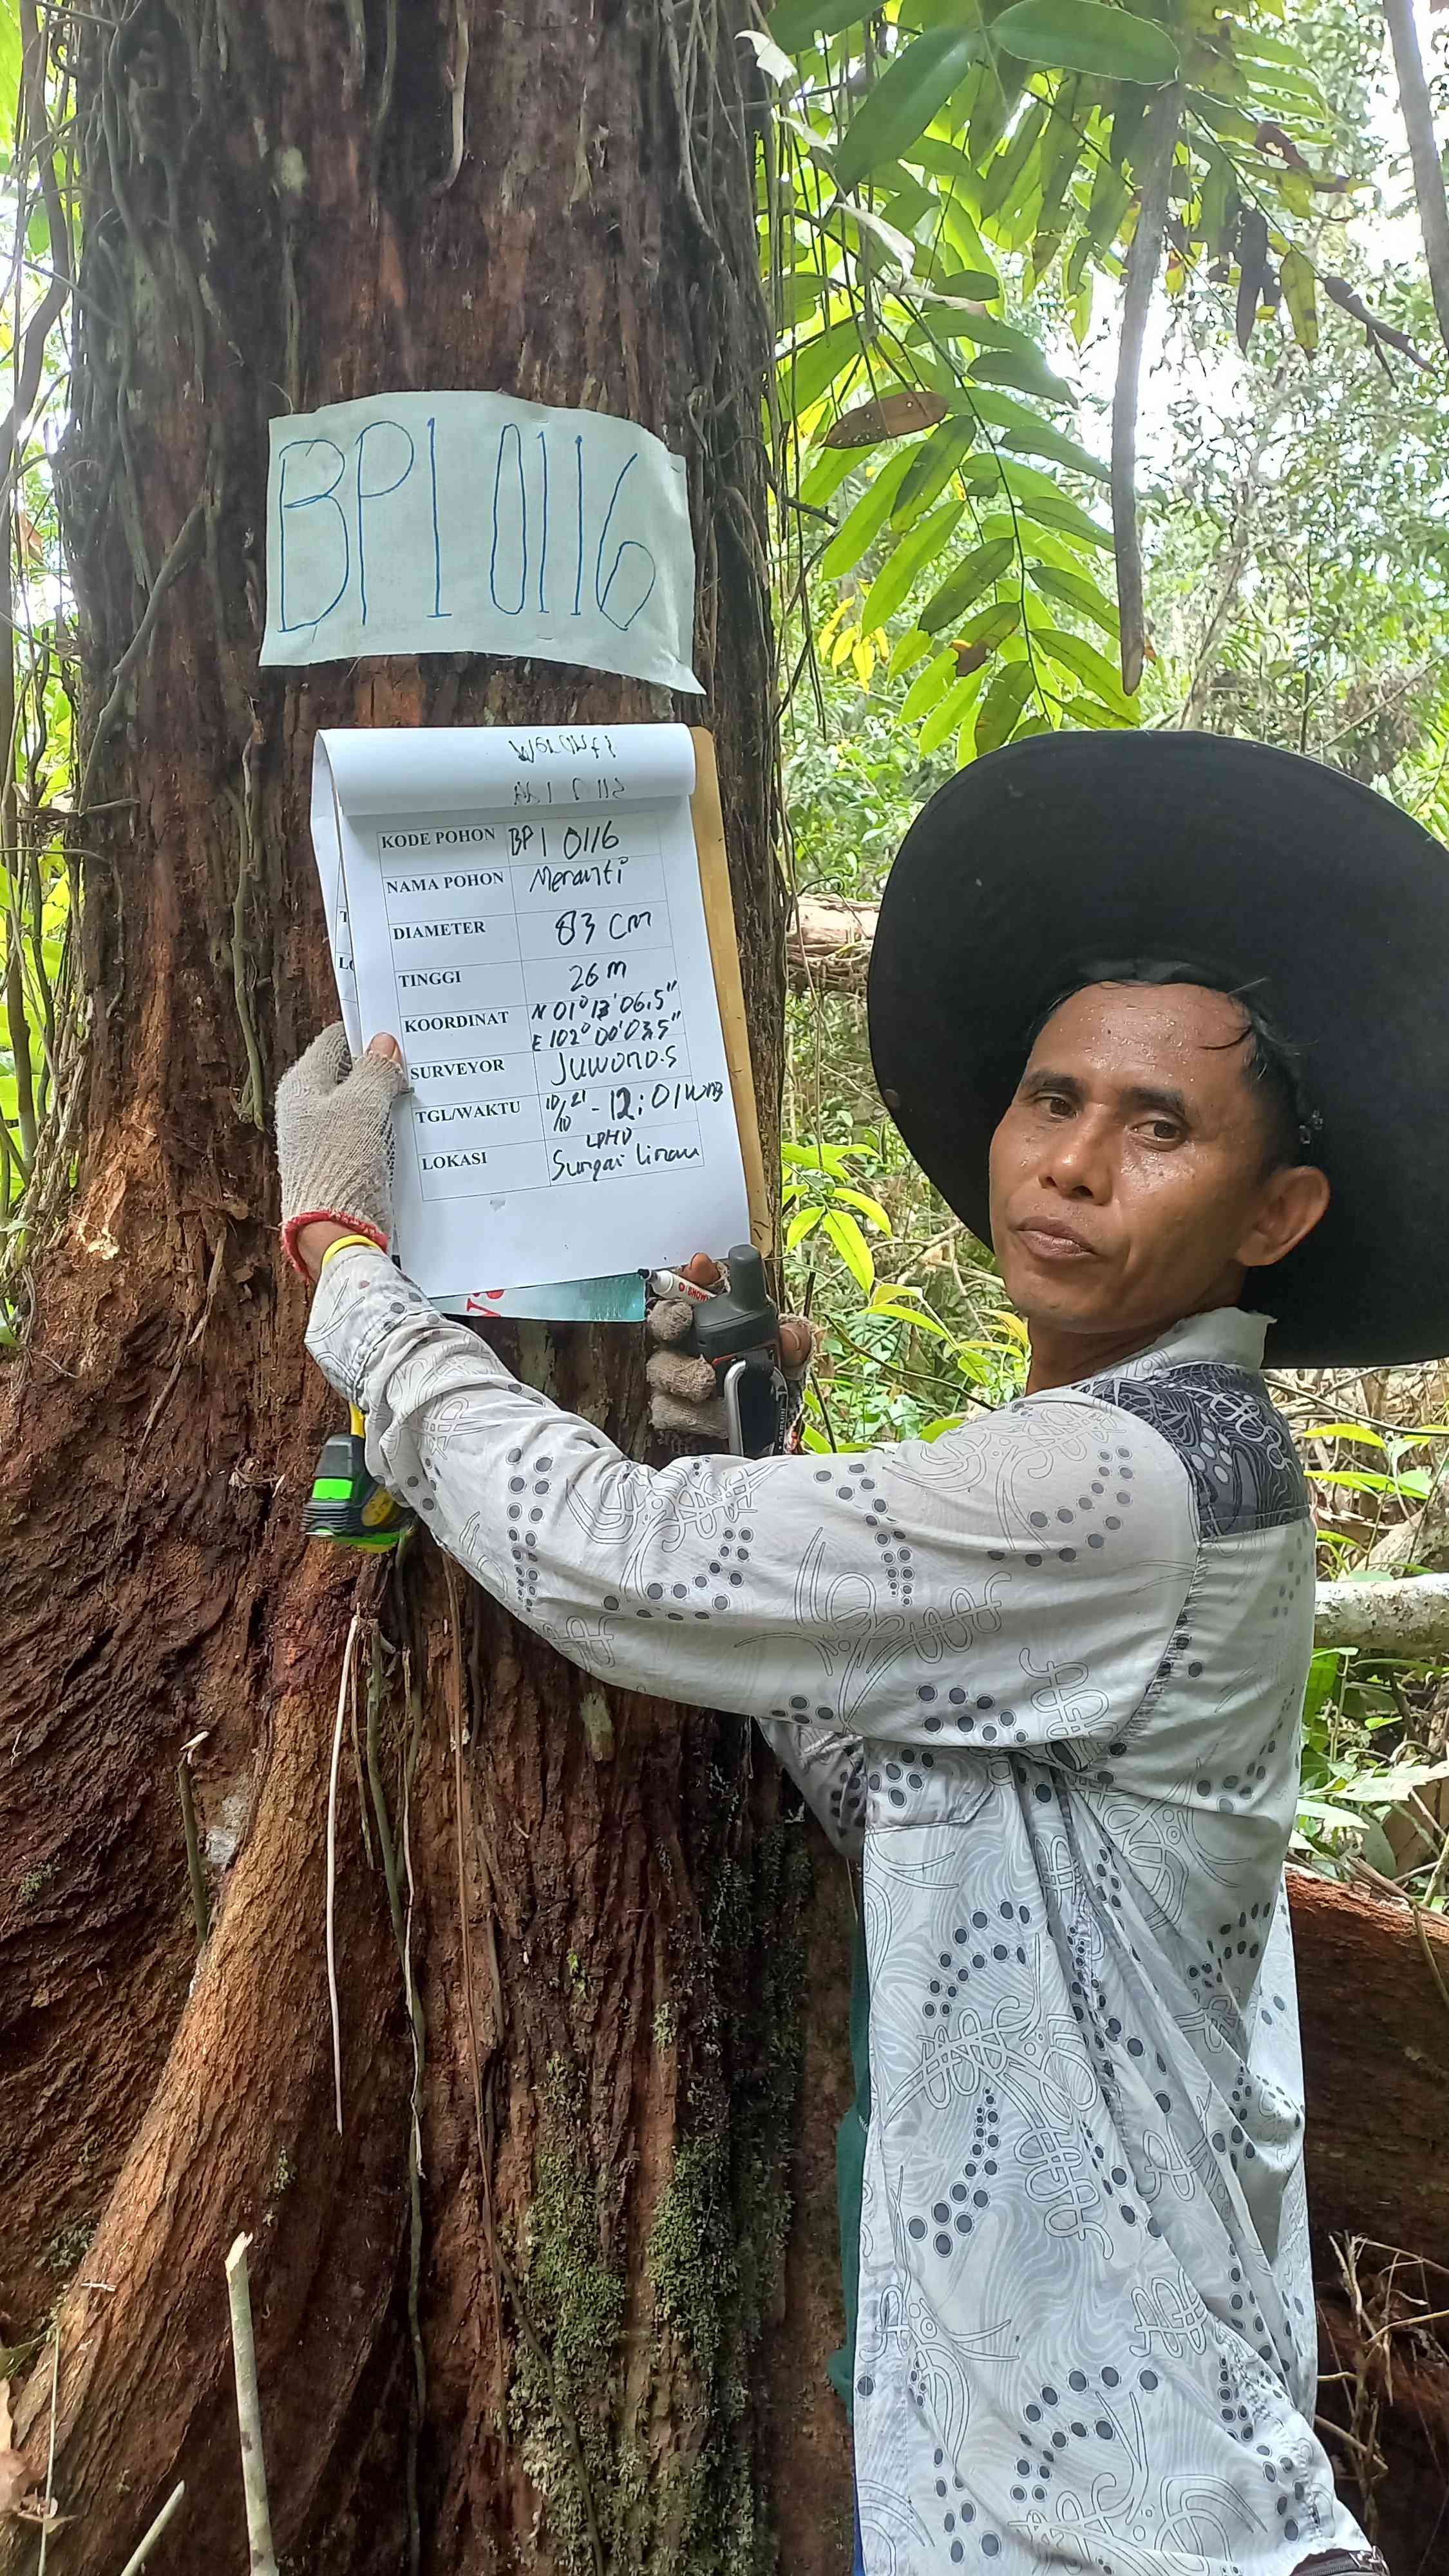 BP1 0116
KODE POHON BP1 0116
NAMA POHON Meranti
DIAMETER 83 CM
TINGGI 26 M
KOORDINAT N 01° 13' 06.5"
E 102° 00' 03,5"
SURVEYOR JUWONO.S
TGL/WAKTU 10/10 21 - 12:01 WIB
LPHD
LOKASI Sungai linau